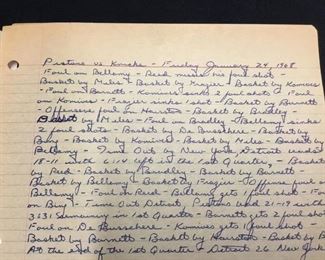 Pistons vs Knicks - Friday January 24, 1968
Foul on Bellamy - Reed misses his foul shot -
Basket by Miles - Basket by Frazier - Basket by Komives
- Foul on Barnett - Komives sinks 2 foul shots - Foul
on Komives - Frazier sinks 1 shot - Basket by Barnett
- Offensive foul on Hairston - Basket by Bradley -
Basket by Miles - Foul on Bradley - Bellamy sinks
2 foul shots - Basket by De Busschere - Basket by
Bing - Basket by Komives - Basket by Miles - Basket by
Bellamy - Time Out by New York Detroit leads
18-11 with 6:14 left in the 1st Quarter - Basket
by Reed - Basket by Bradley - Basket by Barnett -
Basket by Bellamy - Basket by Frazier - Offensive foul on
Bellamy - Foul on Reed - Bing gets 1 foul shot - Foul
on Bing - Time Out Detroit, Pistons lead 21-19 with
3:31 remaining in 1st Quarter - Barnett gets 2 foul shots
Foul on De Busschere - Komives gets 1 foul shot -
Basket by Barnett - Basket by Hairston - Basket by
At the end of the 1st Quarter - Detroit 26 New York